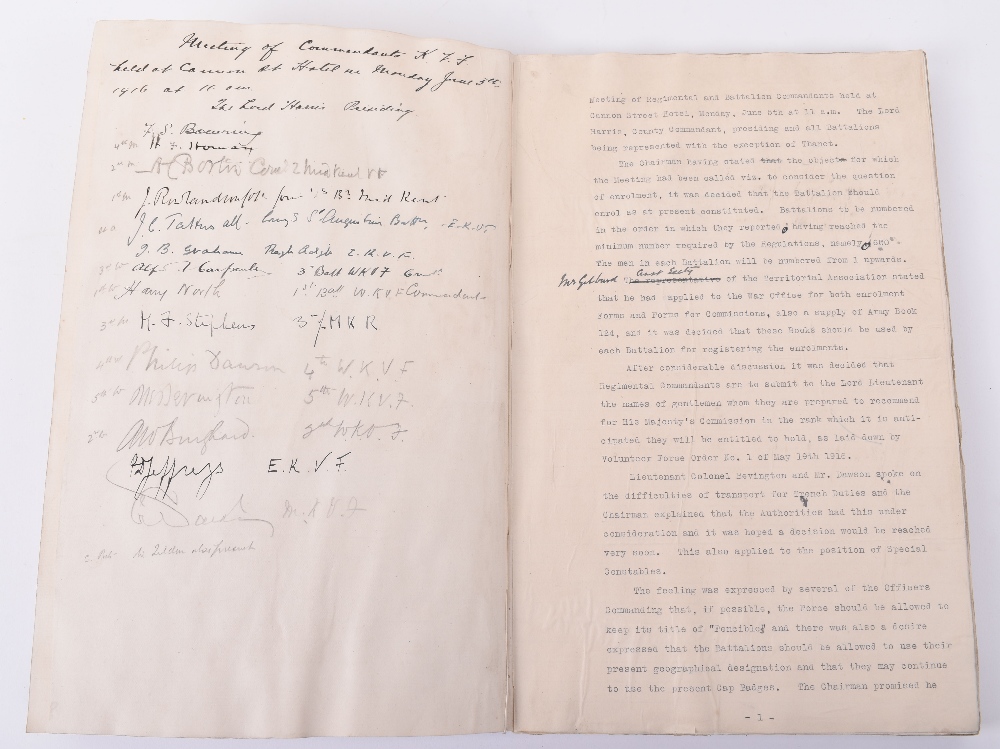 Meeting of Commandants K.F.F
held at Cannon St Hotel on Monday June 5th
1916 at 11 am
The Lord Harris Presiding
F. S. Bowring
4th
3rd
1st
J. C. Tattersall - St Augustin's Battn - E.K.V.F
J. B. Graham E.K.V.F.
3rd Alfred Carpenter 3 Batt WKVF
Harry North 1st Batt W.K.V.F Commandant
3rd H. F. Stephens 3rd /M K R
4th Philip Dawson 4th W.K.V.F
5th Bevington 5th W.K.V.F.
2nd 2nd W.K.V.F.
Jeffreys E.K.V.F.
M.K.V.F
also present
Meeting of Regimental and Battalion Commandants held at
Cannon Street Hotel, Monday, June 5th at 11 a.m. The Lord
Harris, County Commandant, presiding and all Battalions
being represented with the exception of Thanet.
The Chairman having stated that the objects for which
the Meeting had been called viz. to consider the question
of enrolment, it was decided that the Battalion should
enrol as at present constituted. Battalions to be numbered
in the order in which they reported having reached the
minimum number required by the Regulations, namely
The men in each Battalion will be numbered from 1 upwards.
Mr Gibbard Asst Secty
The representative of the Territorial Association stated
that he had applied to the War Office for both enrolment
Forms and Forms for Commissions, also a supply of Army Book
124, and it was decided that these Books should be used by
each Battalion for registering the enrolments.
After considerable discussion it was decided that
Regimental Commandants are to submit to the Lord Lieutenant
the names of gentlemen whom they are prepared to recommend
for His Majesty's Commission in the rank which it is anti-
cipated they will be entitled to hold, as laid down by
Volunteer Force Order No. 1 of May 19th 1916.
Lieutenant Colonel Bevington and Mr. Dawson spoke on
the difficulties of transport for Trench Duties and the
Chairman explained that the Authorities had this under
consideration and it was hoped a decision would be reached
very soon. This also applied to the position of Special
Constables.
The feeling was expressed by several of the Officers
Commanding that, if possible, the Force should be allowed to
keep its title of "Fencible" and there was also a desire
expressed that the Battalions should be allowed to use their
present geographical designation and that they may continue
to use the present Cap Badges. The Chairman promised he
- 1 -